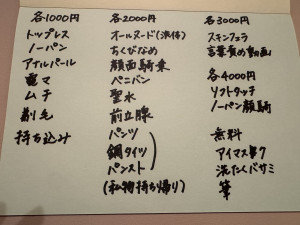 各1000円
トップレス
ノーパン
アナルパール
電マ
ムチ
剃毛
持ち込み
各2000円
オールヌード(流体)
ちくびなめ
顔面騎乗
ペニバン
聖水
前立腺
パンツ
網タイツ
パンスト
(私物持ち帰り)
各3000円
スキンフェラ
言葉責め動画
各4000円
ソフトタッチ
ノーパン顔騎
無料
アイマスク
洗たくバサミ
筆